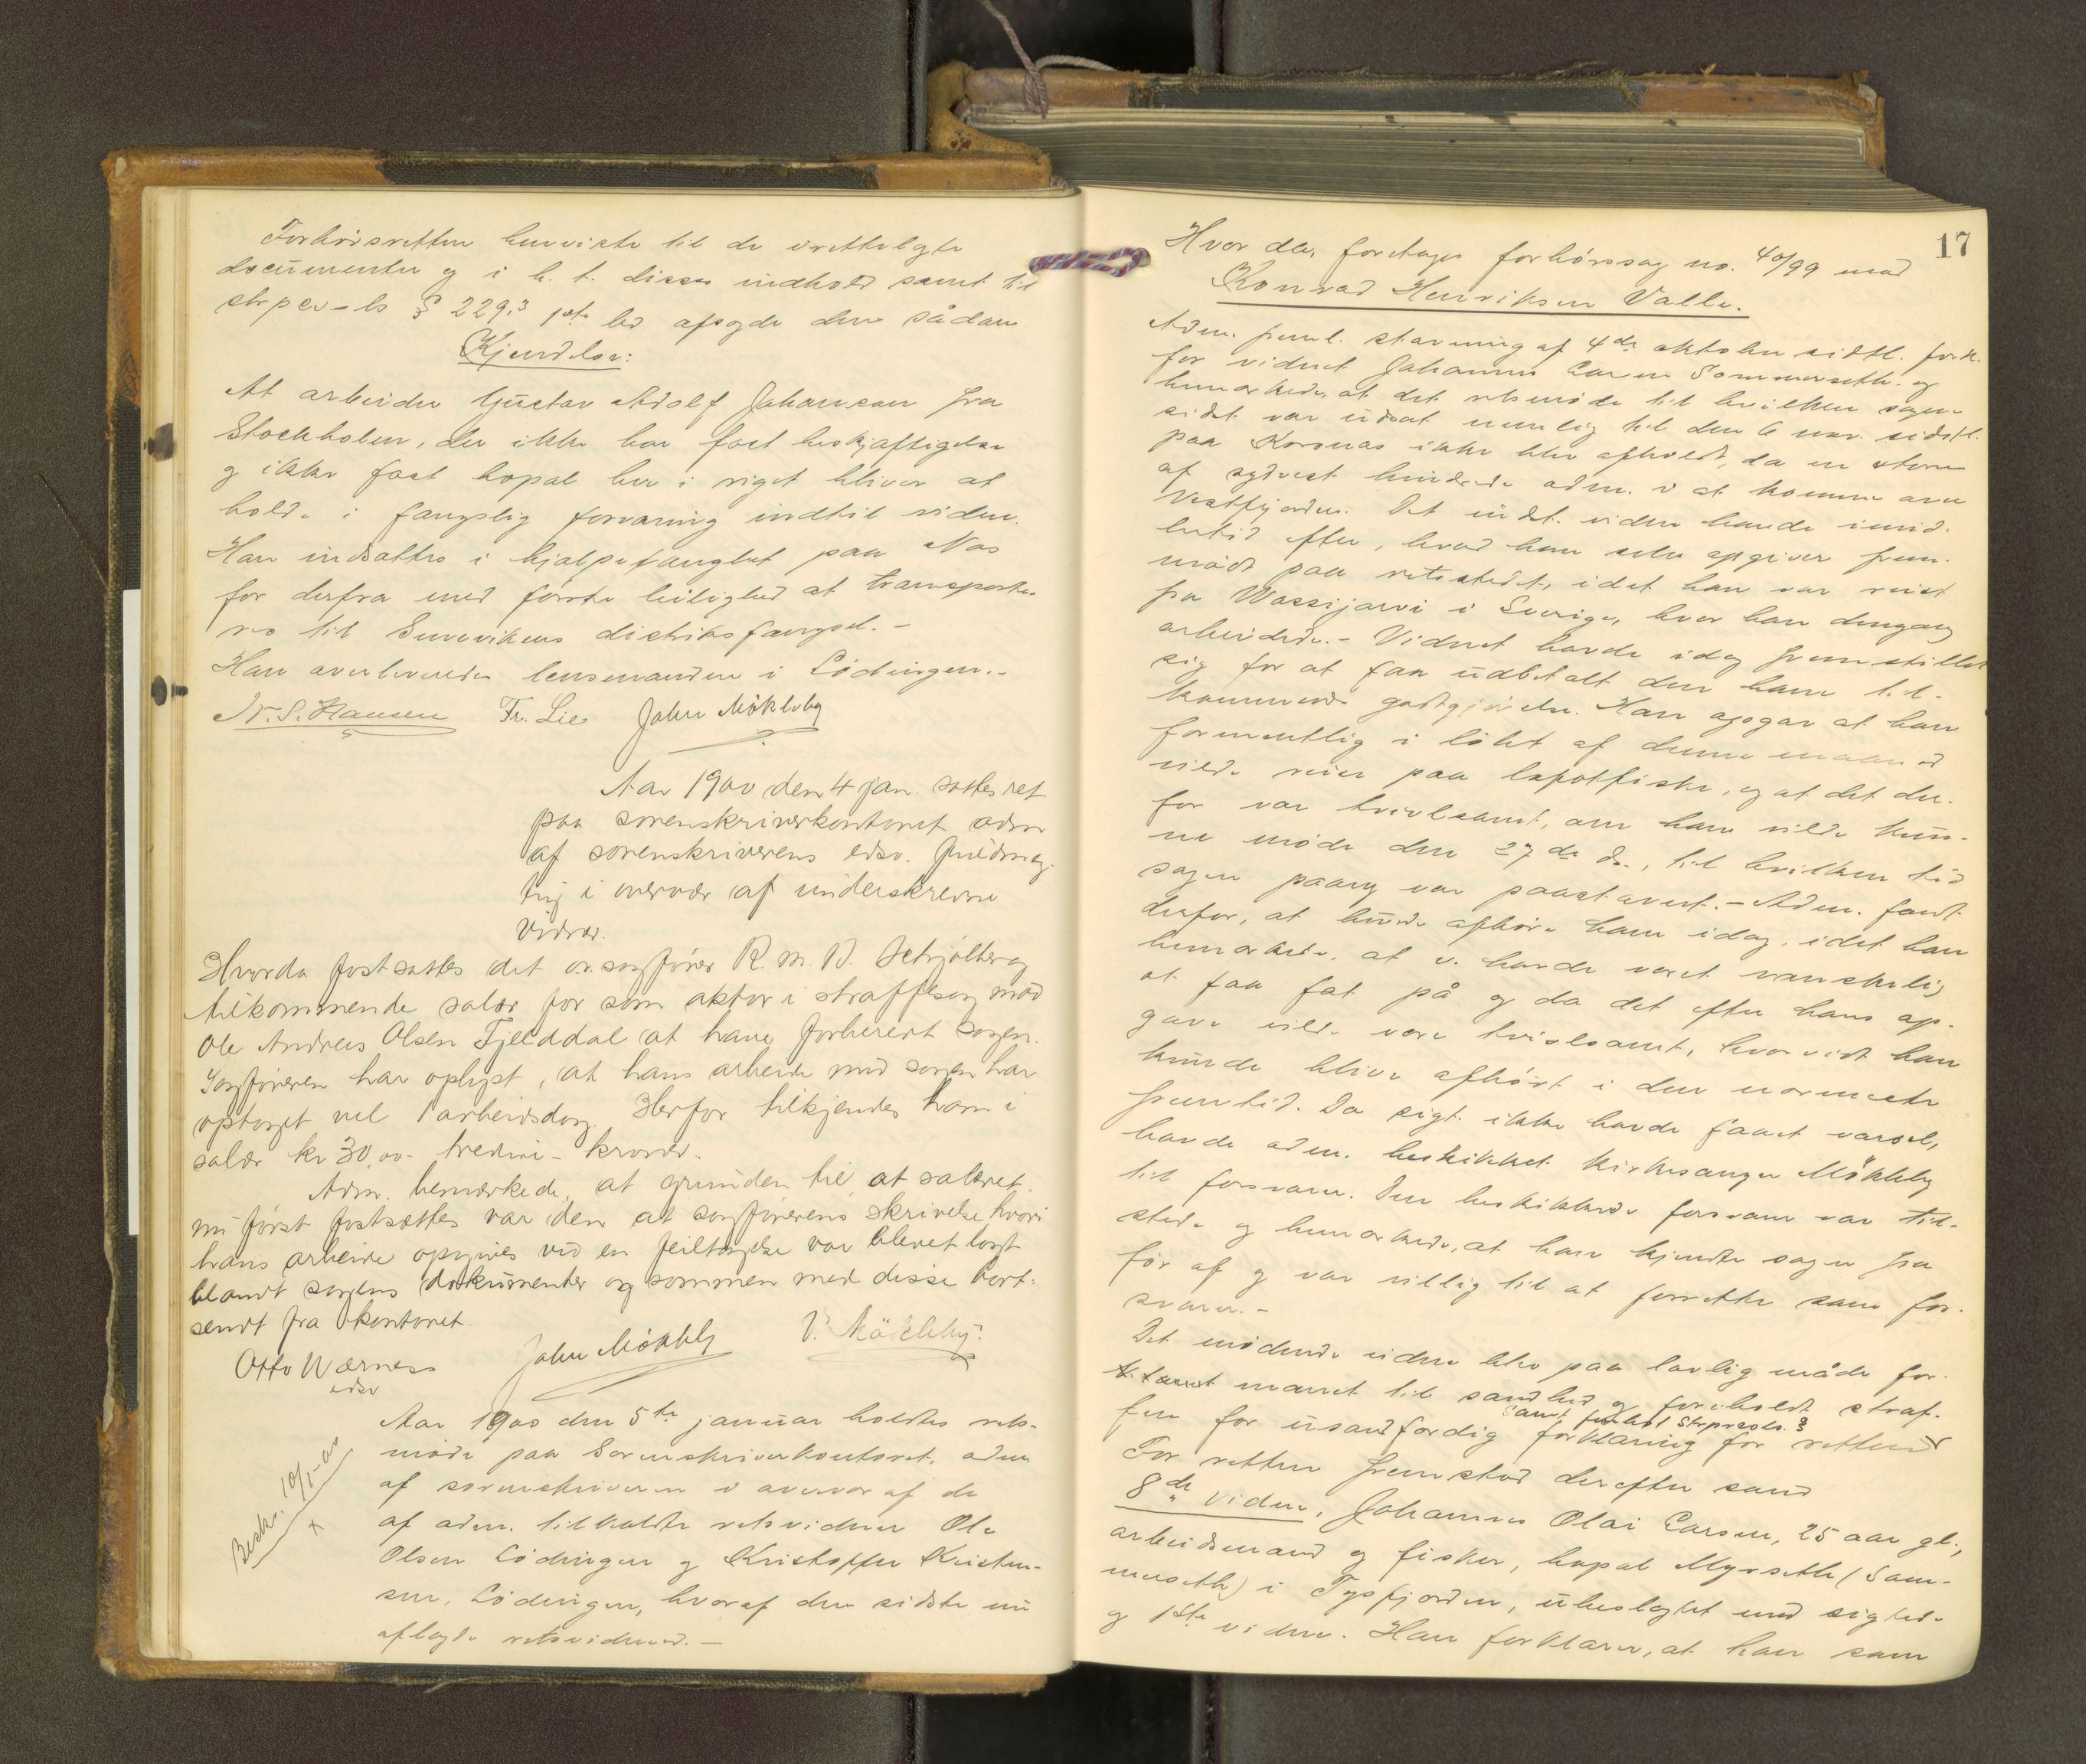 Forhörsretten henviste til de irettelagte
documenter og i h. t. disses indhold samt til
strpcs-ls § 229,3 1ste led afsagde den sådan
Kjendelse:
At arbeider Gustav Adolf Johansson fra
Stockholm, der ikke har fast beskjæftigelse
g ikke fast bopæl her i riget bliver at
holde i fængslig forvaring indtil videre.
Han indsattes i hjælpefængslet paa Næs
for derfra med förste leilighed at transporte-
res til Svolvikens distriktsfængsel. -
Han overleveredes lensmanden i Lödingen. -
N. S. Hansen Fr. Lie John Mökleby
Aar 1900 den 4 jan. sattes ret
paa sorenskriverkontoret adm
af sorenskriverens edsv. fuldmæg
tig i overvær af underskrevne
vidner.
Hvorda fastsattes det o.r. sagförer R. M. B. Schjölberg
tilkommende salær for som aktor i straffesag mod
Ole Andreas Olsen Fjelddal at have forberedt sagen.
Sagföreren har oplyst, at hans arbeide med sagen har
optaget vel 1 arbeidsdag. Herfor tilkjendes ham i
salær kr 30,00 - tredive - kroner.
Adm. bemærkede, at grunden til, at salæret
nu först fastsættes var den at sagförerens skrivelse hvori
hans arbeide opgives ved en feiltagelse var blevet lagt
blandt sagens dokumenter og sammen med disse bort-
sendt fra kontoret.
Otto Wærness John Mökleby V. Mökleby
edsv
Besk. 10/1-00
x
Aar 1900 den 5te januar holdtes rets-
möde paa Sorenskriverkontoret, adm
af sorenskriveren i overvær af de
af adm. tilkaldte retsvidner Ole
Olsen Lödingen g Kristoffer Kristen-
sen, Lödingen, hvoraf den sidste nu
aflagde retsvidneed. -
17
Hvor da, foretages forhörssag no. 40/99 mod
Konrad Henriksen Valle.
Adm. freml. stævning af 4de oktober sidstl. fork.
for vidnet Johannes Larsen Sommerseth. og
bemærkede, at det retsmöde til hvilken sagen
sidst var udsat nemlig til den 6 nov. sidstl.
paa Korsnæs ikke blev afholdt, da en storm
af sydvest hindrede adm. i at komme over
Vestfjorden. Det indst. vidne havde imid-
lertid efter, hvad han selv opgiver frem-
mödt paa retsstedet, idet han var reist
fra Wassijarvi i Sverige, hvor han dengang
arbeidede. - Vidnet havde idag fremstillet
sig for at faa udbetalt den ham til-
kommende godtgjörelse. Han opgav at han
formentlig i löbet af denne maaned
vilde reise paa lofotfiske, og at det der-
for var tvivlsomt, om han vilde kun-
ne möde den 27de ds., til hvilken tid
sagen paany var paastævnt. - Adm. fandt
derfor, at burde afhöre ham idag, idet han
bemærkede, at v. havde været vanskelig
at faa fat på g da det efter hans op-
gave vilde være tvivlsomt, hvorvidt han
kunde blive afhört i den nærmeste
fremtid. Da sigt. ikke havde faaet varsel,
havde adm. beskikket kirkesanger Mökleby
til forsvarer. Den beskikkede forsvarer var til-
stede g bemærkede, at han kjendte sagen fra
för af g var villig til at forrette som for-
svarer. -
Det mödende vidne blev paa lovlig måde for-
manet til sandhed og foreholdt straf-
samt foreholdt Strprocls. §
fen for usandfærdig forklaring for retten
For retten fremstod derefter som
8de vidne, Johannes Olai Larsen, 25 aar gl.,
arbeidsmand g fisker, bopæl Myrseth (Som-
merseth) i Tysfjorden, ubeslægtet med sigtede
g 1ste vidne. Han forklarer, at han som